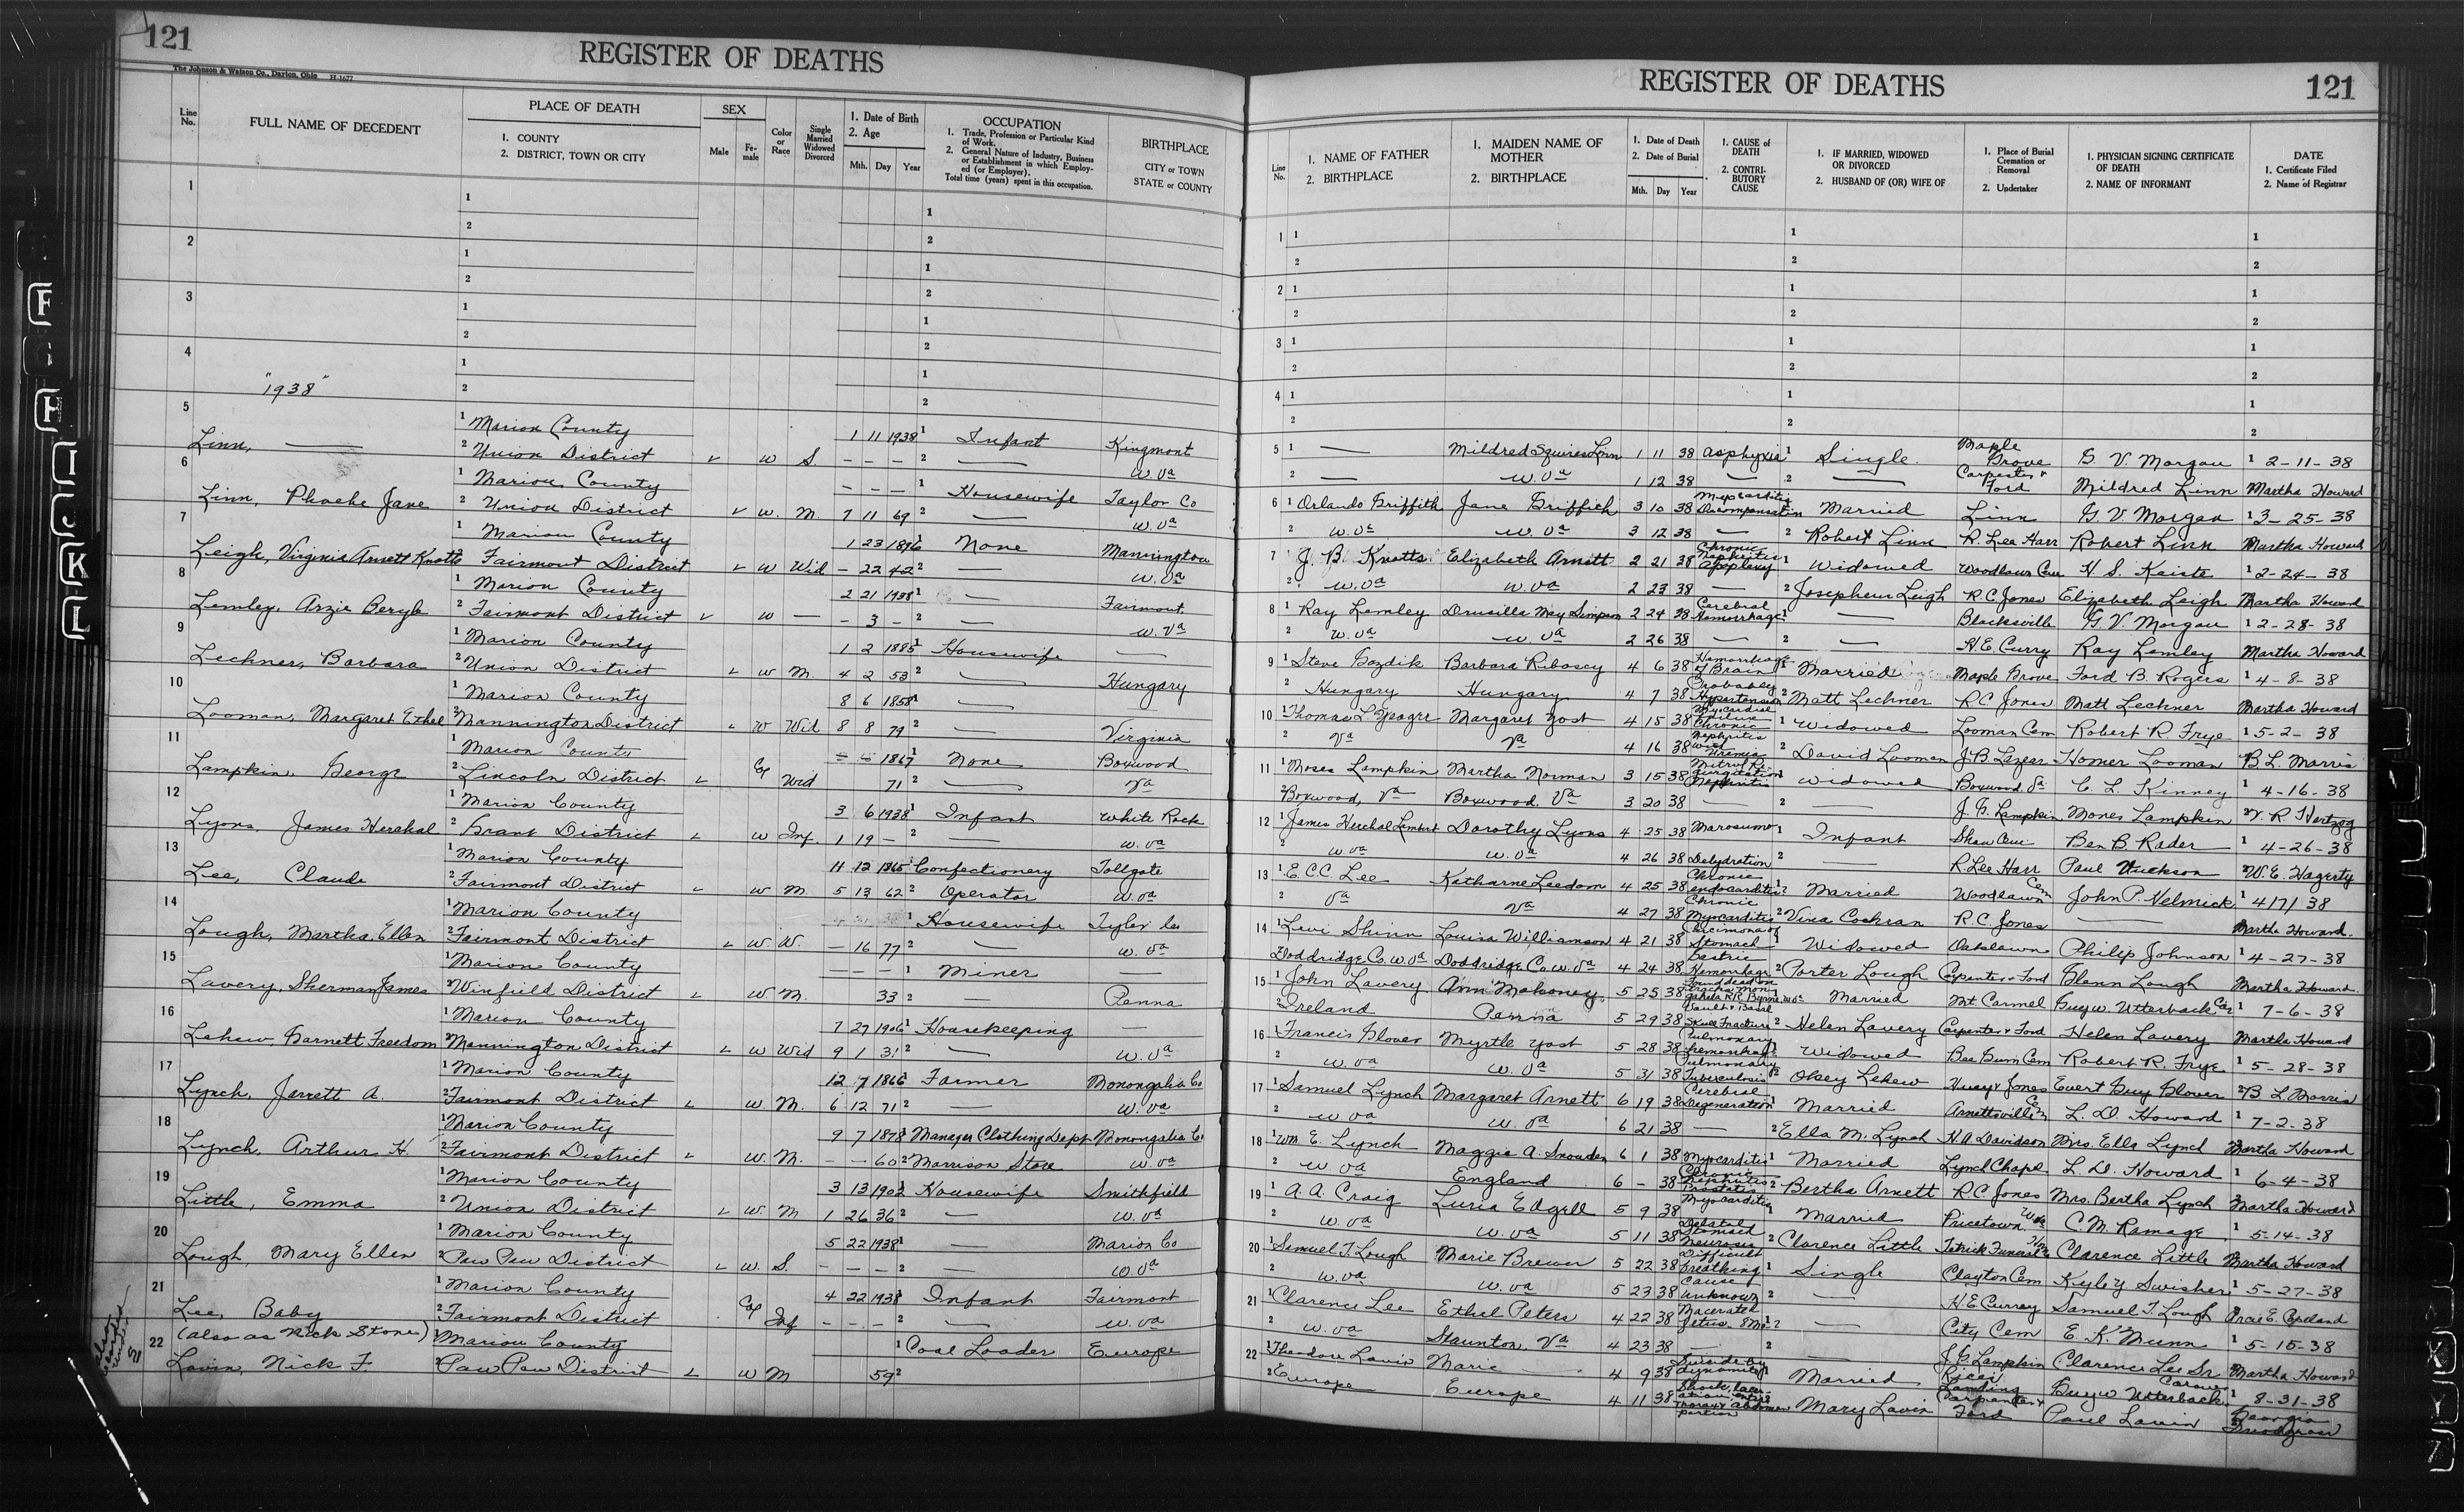 121
REGISTER OF DEATHS
The Johnson & Watson Co., Dayton, Ohio H-1627
Line No.
FULL NAME OF DECEDENT
PLACE OF DEATH
1. COUNTY
2. DISTRICT, TOWN OR CITY
SEX
Male
Female
Color or Race
Single Married Widowed Divorced
1. Date of Birth
2. Age
Mth. Day Year
OCCUPATION
1. Trade, Profession or Particular Kind of Work.
2. General Nature of Industry, Business or Establishment in which Employed (or Employer).
Total time (years) spent in this occupation.
BIRTHPLACE
CITY or TOWN
STATE or COUNTY
"1938"
5 1 Marion County 1 11 1938 1 Infant Kingmont
Linn, — 2 Union District w S. — — — 2 — W. Va
6 1 Marion County — — — 1 Housewife Taylor Co
Linn, Phoebe Jane 2 Union District w. M. 7 11 69 2 — W. Va
7 1 Marion County 1 23 1896 1 None Mannington
Leigh, Virginia Arnett Knotts Fairmont District w Wid — 22 42 2 — W. Va
8 1 Marion County 2 21 1938 1 — Fairmont
Lemley, Arzie Beryle 2 Fairmont District w — — 3 — 2 — W. Va
9 1 Marion County 1 2 1885 1 Housewife —
Lechner, Barbara 2 Union District w M. 4 2 53 2 — Hungary
10 1 Marion County 8 6 1858 1 — —
Looman, Margaret Ethel 2 Mannington District w Wid 8 8 79 2 — Virginia
11 1 Marion County 1867 1 None Boxwood
Lampkin, George 2 Lincoln District Col Wid 71 2 — Va
12 1 Marion County 3 6 1938 1 Infant White Rock
Lyons, James Herchal 2 Grant District w Inf. 1 19 — 2 — W. Va
13 1 Marion County 11 12 1865 1 Confectionery Tollgate
Lee, Claude 2 Fairmont District w M. 5 13 62 2 Operator W. Va
14 1 Marion County 1 Housewife Tyler Co
Lough, Martha Ellen 2 Fairmont District w. W. — 16 77 2 — W. Va
15 1 Marion County — — — 1 Miner —
Lavery, Sherman James 2 Winfield District w M. 33 2 — Penna
16 1 Marion County 7 27 1906 1 Housekeeping —
Lehew, Garnett Freedom 2 Mannington District w Wid 9 1 31 2 — W. Va
17 1 Marion County 12 7 1866 1 Farmer Monongalia Co
Lynch, Jarrett A. 2 Fairmont District w. M. 6 12 71 2 — W. Va
18 1 Marion County 9 7 1878 1 Manager Clothing Dept Monongalia Co
Lynch, Arthur H. 2 Fairmont District w. M. — — 60 2 Morrison Store W. Va
19 1 Marion County 3 13 1902 1 Housewife Smithfield
Little, Emma 2 Union District w. M 1 26 36 2 — W. Va
20 1 Marion County 5 22 1938 1 — Marion Co
Lough, Mary Ellen 2 Paw Paw District w. S. — — — 2 — W. Va
21 1 Marion County 4 22 1938 1 Infant Fairmont
Lee, Baby 2 Fairmont District Col Inf — — — 2 — W. Va
(also as Nick Stone)
22 1 Marion County 1 Coal Loader Europe
Lavin, Nick F. 2 Paw Paw District w M 59 2
REGISTER OF DEATHS
121
Line No.
1. NAME OF FATHER
2. BIRTHPLACE
1. MAIDEN NAME OF MOTHER
2. BIRTHPLACE
1. Date of Death
2. Date of Burial
Mth. Day Year
1. CAUSE of DEATH
2. CONTRIBUTORY CAUSE
1. IF MARRIED, WIDOWED OR DIVORCED
2. HUSBAND OF (OR) WIFE OF
1. Place of Burial Cremation or Removal
2. Undertaker
1. PHYSICIAN SIGNING CERTIFICATE OF DEATH
2. NAME OF INFORMANT
DATE
1. Certificate Filed
2. Name of Registrar
5 1 — Mildred Squires Linn 1 11 38 Asphyxia 1 Single Maple Grove G. V. Morgan 1 2-11-38
2 — W. Va 1 12 38 — 2 — Carpenter & Ford Mildred Linn Martha Howard
6 1 Orlando Griffith Jane Griffith 3 10 38 Myocarditis Decompensation Married Linn G. V. Morgan 1 3-25-38
2 W. Va W. Va 3 12 38 — 2 Robert Linn R. Lee Harr Robert Linn Martha Howard
7 1 J. B. Knotts Elizabeth Arnett 2 21 38 Chronic Nephritis Apoplexy 1 Widowed Woodlawn Cem H. S. Keister 1 2-24-38
2 W. Va W. Va 2 23 38 — 2 Josephus Leigh R. C. Jones Elizabeth Leigh Martha Howard
8 1 Ray Lemley Drusilla May Simpson 2 24 38 Cerebral Hemorrhage 1 — Blacksville G. V. Morgan 1 2-28-38
2 W. Va W. Va 2 26 38 — 2 — H. E. Curry Ray Lemley Martha Howard
9 1 Steve Gozdik Barbara Riboscy 4 6 38 Hemorrhage of Brain Married Maple Grove Ford B. Rogers 1 4-8-38
2 Hungary Hungary 4 7 38 Probably Hypertension 2 Matt Lechner R C Jones Matt Lechner Martha Howard
10 1 Thomas L. Yeagre Margaret Yost 4 15 38 Myocardial Failure 1 Widowed Looman Cem Robert R. Frye 1 5-2-38
2 Va Va 4 16 38 Chronic Nephritis with Uremia 2 David Looman J. B. Lazear Homer Looman B. L. Morris
11 1 Moses Lampkin Martha Norman 3 15 38 Mitral Regurgitation Nephritis Widowed Boxwood Va C. L. Kinney 1 4-16-38
2 Boxwood, Va Boxwood, Va 3 20 38 — 2 — J. G. Lampkin Mones Lampkin 2 V. R. Hertzog
12 1 James Herchal Lambert Dorothy Lyons 4 25 38 Marosumo 1 Infant Shaw Cem Ben B. Rader 1 4-26-38
2 W. Va W. Va 4 26 38 Dehydration 2 — R. Lee Harr Paul Huckson 2 W. E. Hagerty
13 1 E. C. C. Lee Katharne Leedom 4 25 38 Chronic endocarditis 1 Married Woodlawn Cem John P. Helmick 1 4/7/38
2 Va Va 4 27 38 Chronic Myocarditis 2 Vina Cochran R. C. Jones — Martha Howard
14 1 Levi Shinn Louisa Williamson 4 21 38 Carcinoma of Stomach 1 Widowed Oaklawn Philip Johnson 1 4-27-38
2 Doddridge Co. W. Va Doddridge Co W. Va 4 24 38 Gastric Hemorrhage 2 Porter Lough Carpenter & Ford Glenn Lough Martha Howard
15 1 John Lavery Ann Mahoney 5 25 38 Found dead on Married Mt Carmel Guy W. Utterback Cor 1 7-6-38
2 Ireland Penna 5 29 38 Vault & Basal Skull Fracture 2 Helen Lavery Carpenter & Ford Helen Lavery Martha Howard
16 1 Francis Glover Myrtle Yost 5 28 38 Pulmonary Hemorrhage 1 Widowed Bee Gum Cem Robert R. Frye 1 5-28-38
2 W. Va W. Va 5 31 38 Pulmonary Tuberculosis 2 Okey Lehew Huey & Jones Evert Guy Glover 2 B. L. Morris
17 1 Samuel Lynch Margaret Arnett 6 19 38 Cerebral Degeneration 1 Married Arnettsville Cem L. D. Howard 1 7-2-38
2 W. Va W. Va 6 21 38 — 2 Ella M. Lynch H. A. Davidson Mrs. Ella Lynch Martha Howard
18 1 Wm. E. Lynch Maggie A. Snowden 6 1 38 Myocarditis 1 Married Lynch Chapel L. D. Howard 1 6-4-38
2 W. Va England 6 — 38 Chronic Nephritis Prostatis 2 Bertha Arnett R C Jones Mrs. Bertha Lynch Martha Howard
19 1 A. A. Craig Luria Edgell 5 9 38 Myocarditis Married Pricetown W. Va C. M. Ramage 1 5-14-38
2 W. Va W. Va 5 11 38 Dilated Stomach Neurosis 2 Clarence Little Clarence Little Martha Howard
20 1 Samuel T. Lough Marie Brewer 5 22 38 Difficult breathing 1 Single Clayton Cem Kyley Swisher 1 5-27-38
2 W. Va W. Va 5 23 38 Cause Unknown 2 — H. E. Curray Samuel T. Lough
21 1 Clarence Lee Ethel Peters 4 22 38 Macerated fetus 8 Mo — City Cem E. K. Munn 1 5-15-38
2 W. Va Staunton, Va 4 23 38 — 2 — J. G. Lampkin Clarence Lee Sr Martha Howard
22 1 Theodore Lavin Marie 4 9 38 Suicide by dynamite Married Rices Landing Guy W. Utterback Coroner 1 8-31-38
2 Europe Europe 4 11 38 Shock, laceration Mary Lavin Carpenter & Ford Paul Lavin Georgia